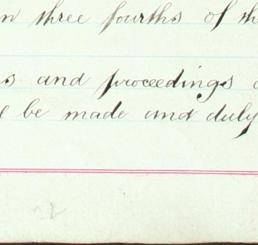 n three fourths of th
s and proceedings
l be made and duly